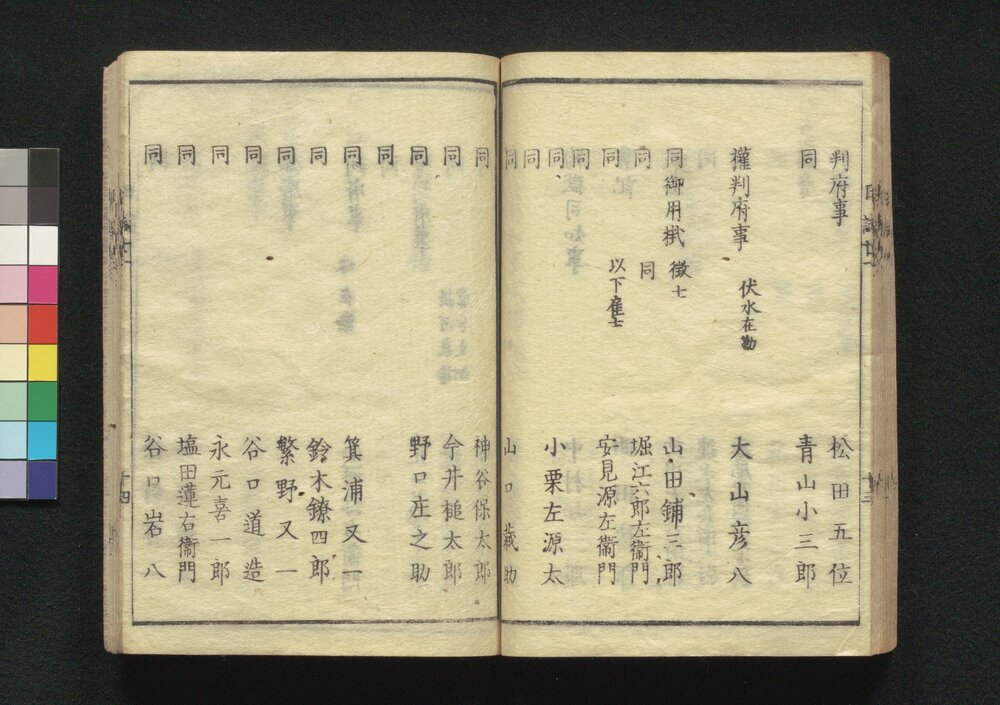 判府事 松田五位
同 青山小三郎
權判府事 伏水在勤 大山彦八
同御用掛 徴士 山田鋪三郎
同 同 堀江六郎左衞門
同 以下雇士 安見源左衞門
同
同 小栗左源太
同
同 山口藏助
同 神谷保太郎
同 今井槌太郎
同 野口庄之助
同
同 箕浦又
同 鈴木鐐四郎
同 繁野又一
同 谷口道造
同 永元喜一郎
同 塩田蓮右衞門
同 谷口岩八
十四